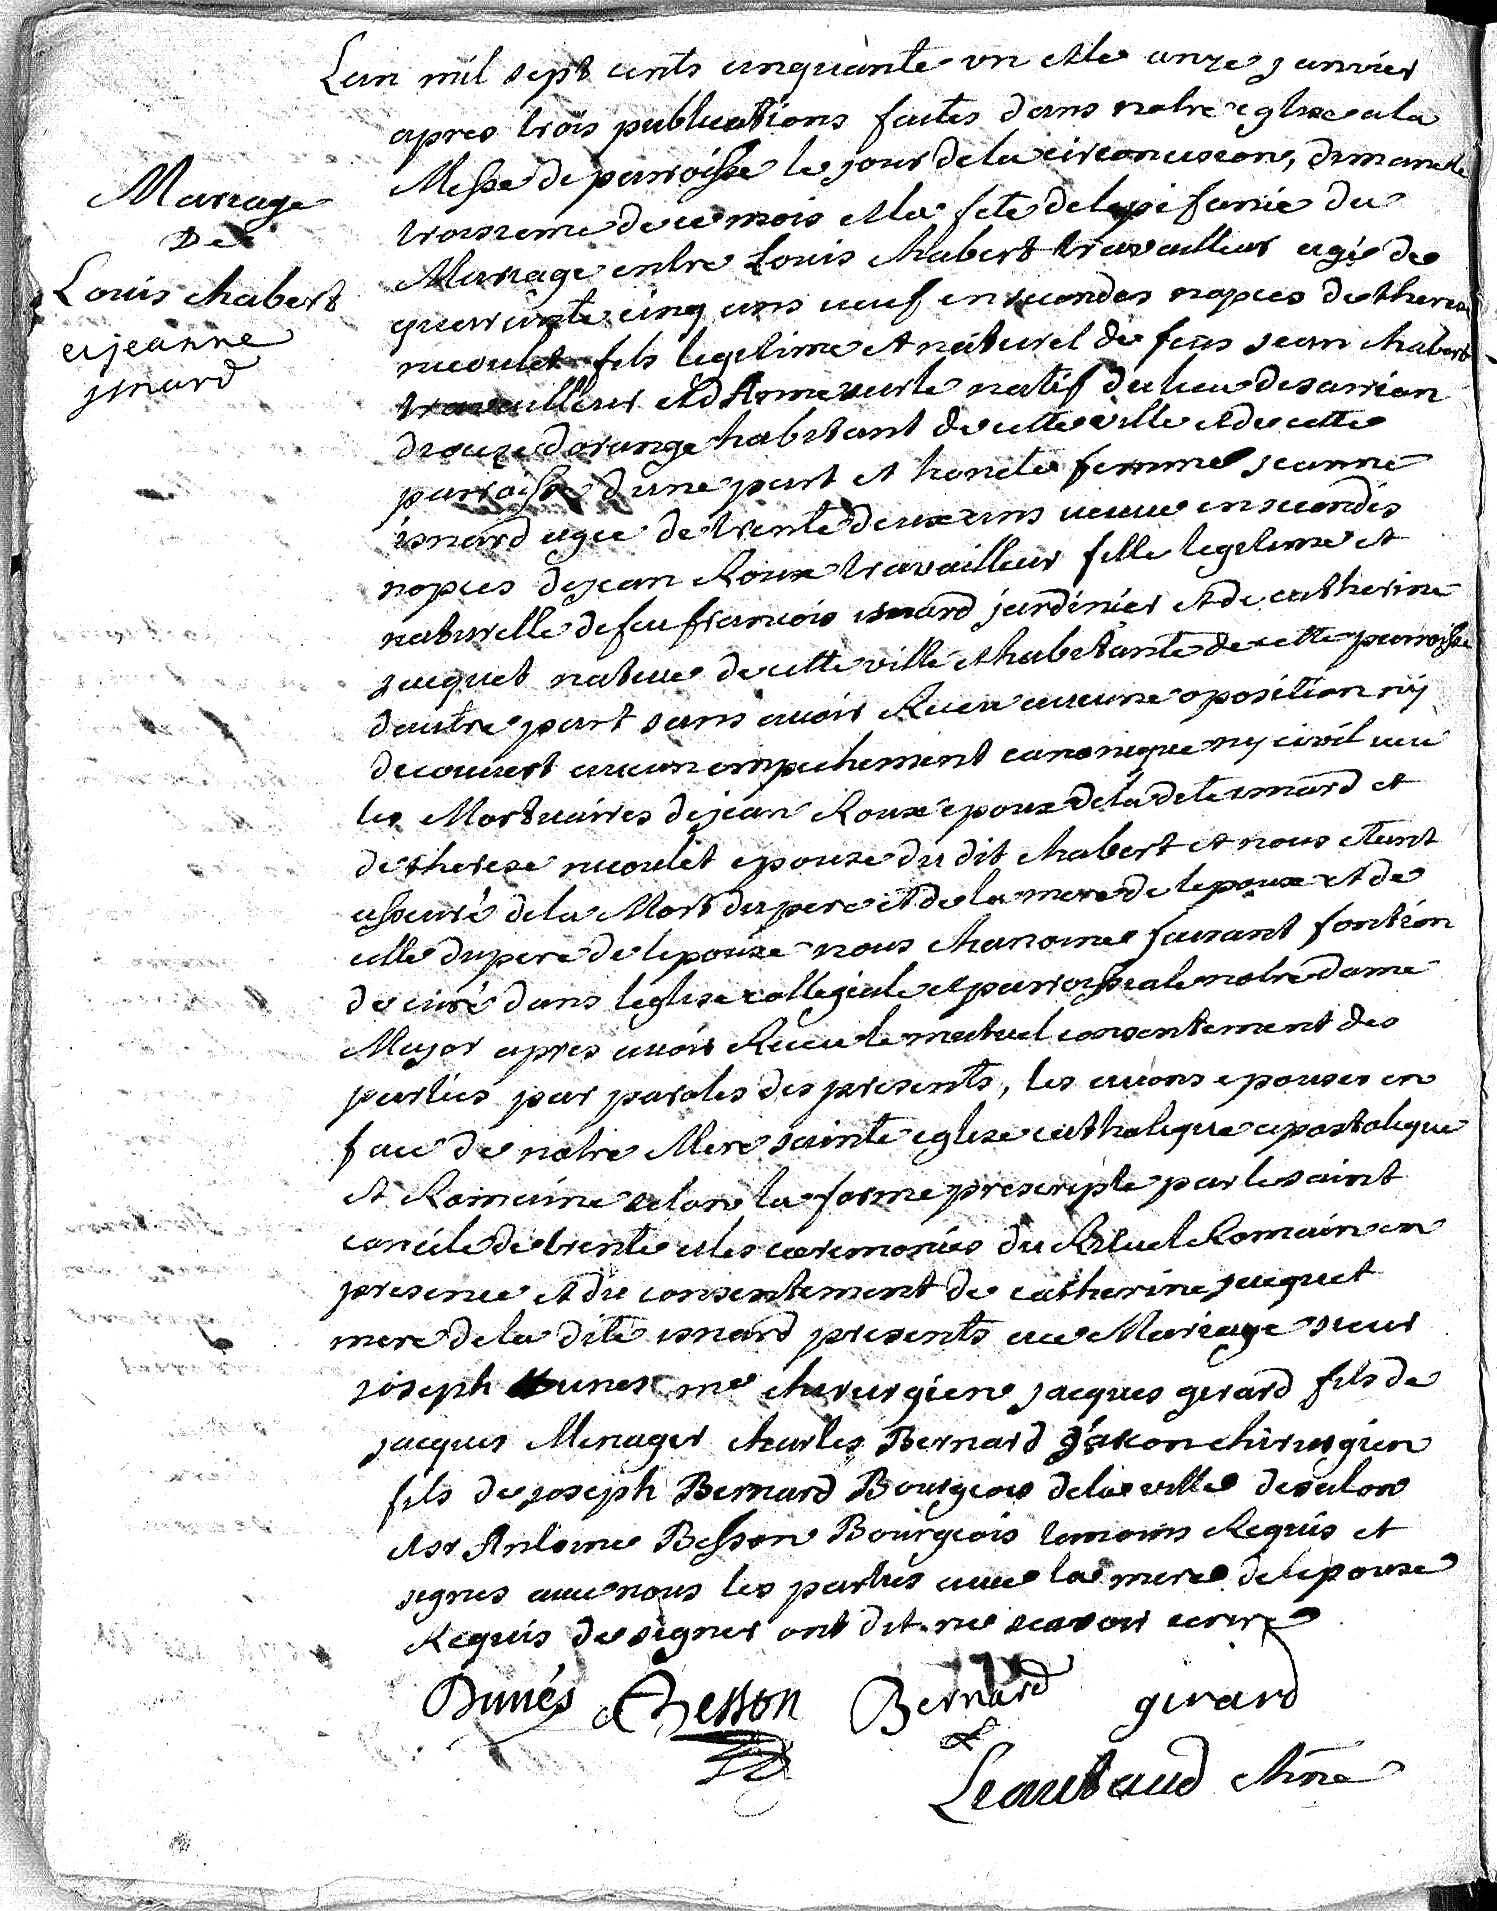 Mariage
De
Louis chabert
et jeanne
isnard
Lan mil sept cents cinquante un et le onze janvier
apres trois publications faites dans notre eglise a la
Messe de parroisse le jour de la circoncision, dimanche
troisieme de ce mois et la fete de lepifanie du
Mariage entre Louis chabert travailleur agé de
quarante cinq ans veuf en secondes nopces de therese
nicoulet fils legitime et naturel de feus jean chabert
travailleur et d'Anne natif du lieu de sarrian
diocese dorange habitant de cette ville et de cette
parroisse d'une part et honete femme jeanne
isnard agee de trente deux ans veuve en secondes
nopces de jean Roux travailleur fille legitime et
naturelle de feu francois isnard jardinier et de catherine
jacquet native de cette ville et habitante de cette parroisse
dautre part sans avoir Receu aucune oposition ny
decouvert aucun empechement canonique ny civil veu
les Mortuaires de jean Roux epoux de la dite isnard et
de therese nicoulet epouse du dit chabert et nous etant
asseuré de la Mort du pere et de la mere de lepoux et de
celle du pere de lepouse nous chanoine faisant fontion
de curé dans leglise collegiale et parroissiale notre dame
Major apres avoir Receu le mutuel consentement des
parties par paroles des presents, les avons epouses en
face de notre Mere sainte eglise catholique apostolique
et Romaine selon la forme prescripte par le saint
concile de trente et les ceremonies du Rituel Romain en
presence et du consentement de catherine jacquet
mere de la dite isnard presents a ce Mariage sieur
joseph Dunes me chirurgien jacques girard fils de
jacques Menager charles Bernard garson chirurgien
fils de joseph Bernard Bourgeois de la ville de salon
et sr Antoine Besson Bourgeois temoins Requis et
signes avec nous les parties avec la mere de lepouse
Requis de signer ont dit ne scavoir ecrire
Dunés Besson Bernard girard
Leautaud chne